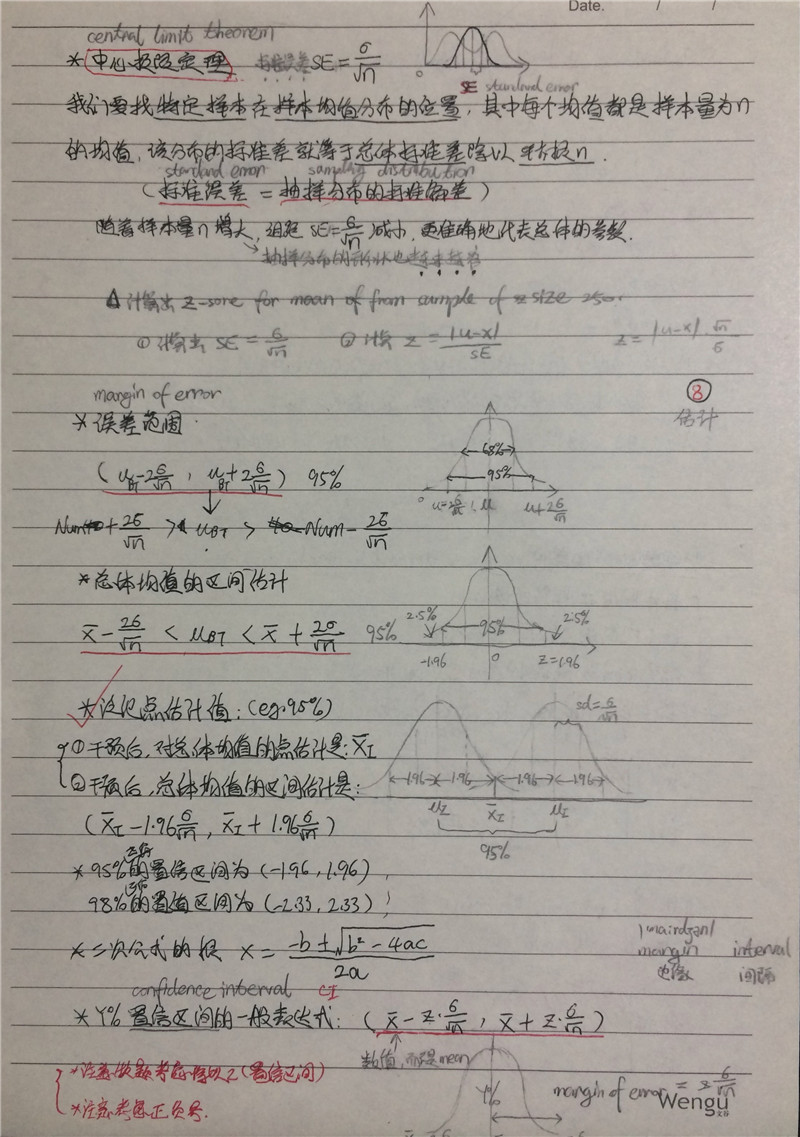 Date. / /
central limit theorem
* 中心极限定理 标准误差 SE = σ/√n
SE standard error
我们要找特定样本在样本均值分布的位置，其中每个均值都是样本量为n
的均值，该分布的标准差就等于总体标准差除以平方根n.
standard error sampling distribution
(标准误差 = 抽样分布的标准偏差)
随着样本量n增大，SE=σ/√n 减小，更准确地代表总体的参数.
抽样分布的形状也越来越窄
计算出 z-sore for mean of from sample of size 250.
① 计算出 SE = σ/√n ② 计算 z = |u-x|/SE z = |u-x|·√n/σ
margin of error ⑧
* 误差范围. 估计
(u_BT-2σ/√n , u_BT+2σ/√n) 95%
68%
95%
0 u-2σ/√n u u+2σ/√n
Num + 2σ/√n > u_BT > Num - 2σ/√n
* 总体均值的区间估计
x̄ - 2σ/√n < u_BT < x̄ + 2σ/√n 95%
2.5% 95% 2.5%
-1.96 0 z=1.96
* 谈论点估计值: (eg.95%) sd=σ/√n
① 干预后，对总体均值的点估计是: x̄_I
1.96 1.96 1.96 1.96
② 干预后，总体均值的区间估计是:
μ_I x̄_I μ_I
(x̄_I - 1.96σ/√n , x̄_I + 1.96σ/√n) 95%
* 95%的置信区间为 (-1.96, 1.96)
98%的置信区间为 (-2.33, 2.33)
* 二次公式的根 x = (-b±√(b²-4ac))/2a
margin interval
边缘 间隔
confidence interval CI
* Y% 置信区间的一般表达式: (x̄ - z·σ/√n , x̄ + z·σ/√n)
数值, 而不是mean
* 注意做题考虑乘以z (置信区间)
Y% margin of error = z·σ/√n
* 注意考虑正负号.
Wengu